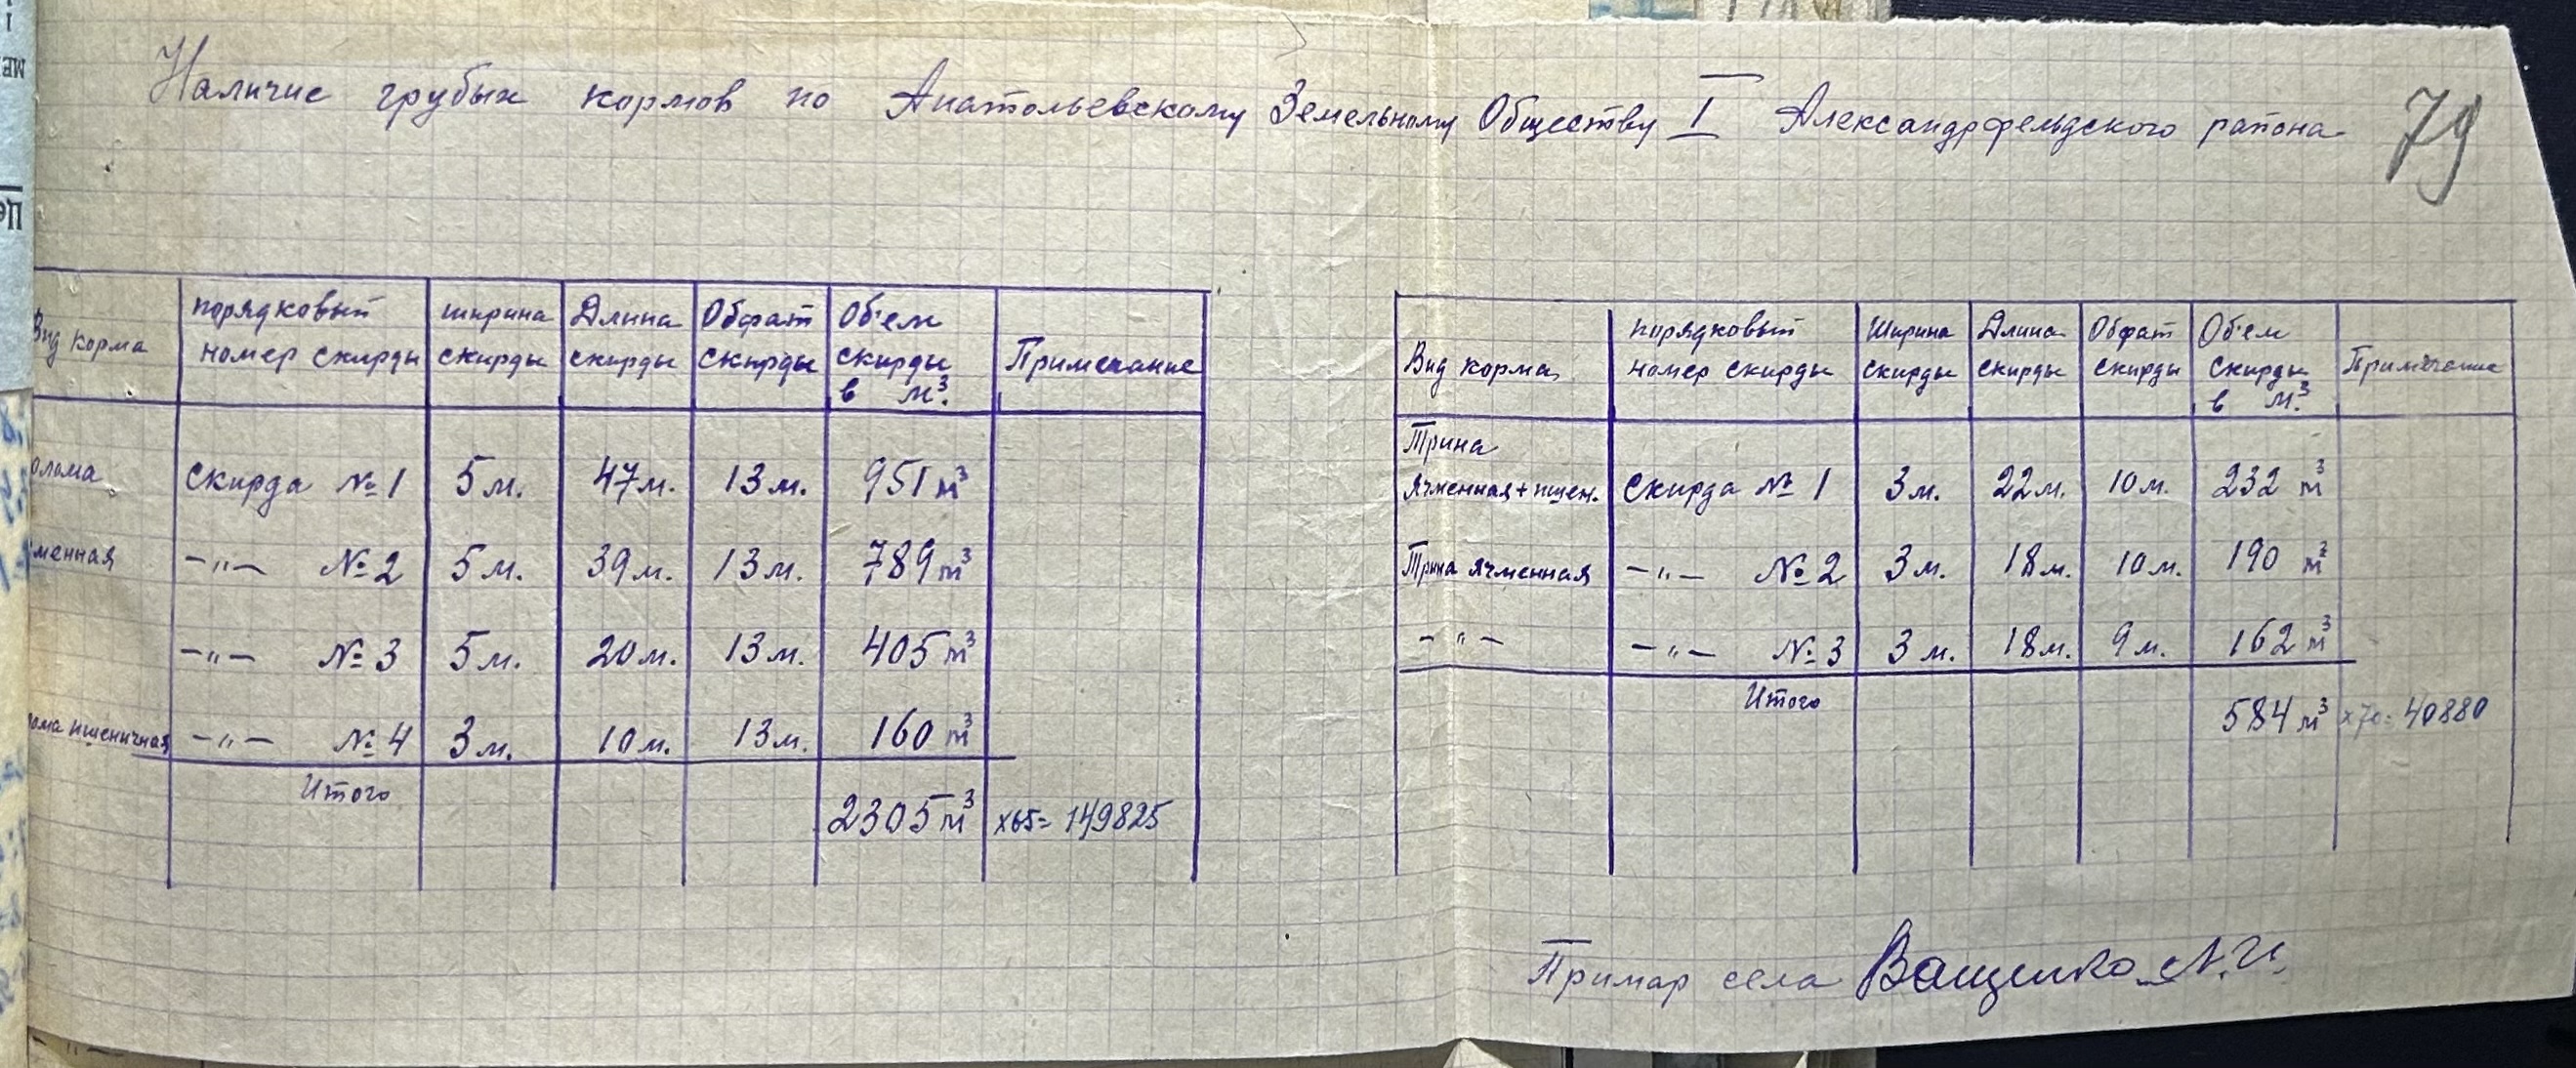 Наличие грубых кормов по Анатольевскому Земельному Обществу I Александрфельдского района
79
Вид корма | порядковый номер скирды | ширина скирды | Длина скирды | Обфат скирды | Об'ем скирды в м³. | Примечание
олома | скирда №1 | 5 м. | 47 м. | 13 м. | 951 м³
менная | -"- №2 | 5 м. | 39 м. | 13 м. | 789 м³
-"- №3 | 5 м. | 20 м. | 13 м. | 405 м³
лома пшеничная | -"- №4 | 3 м. | 10 м. | 13 м. | 160 м³
Итого
2305 м³ | х65= 149825
Вид корма | порядковый номер скирды | Ширина скирды | Длина скирды | Обфат скирды | Об'ем скирды в м.³ | Примечание
Трина
ячменная+пшен. | скирда №1 | 3 м. | 22 м. | 10 м. | 232 м³
Трина ячменная | -"- №2 | 3 м. | 18 м. | 10 м. | 190 м³
-"- | -"- №3 | 3 м. | 18 м. | 9 м. | 162 м³
Итого
584 м³ | х70= 40880
Примар села Ващенко А.И.